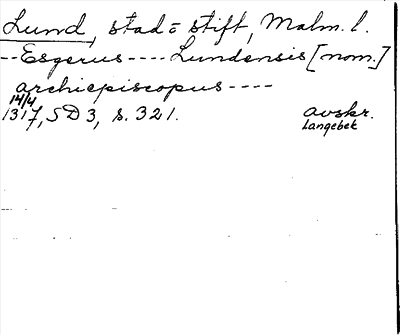 Lund, stad= stift, Malm. l.
--Esgerus---- Lundensis [nom.]
archiepiscopus----
14/4
1317, SD 3, s. 321. avskr.
Langebek